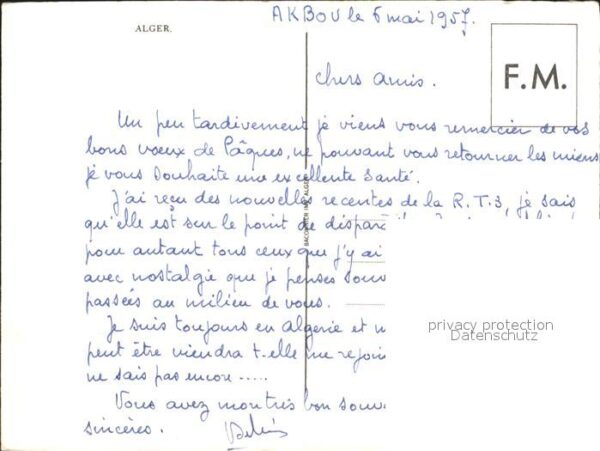 AKBOU le 6 mai 1957.
ALGER.
F.M.
Chers Amis.
Un peu tardivement je viens vous remercier de vos
bons voeux de Pâques, ne pouvant vous retourner les miens
je vous souhaite une excellente santé.
J'ai reçu des nouvelles recentes de la R.T.3, je sais
qu'elle est sur le point de
pour autant tous ceux que j'y ai
avec nostalgie que je penses
passées au milieu de vous.
Je suis toujours en Algerie et
peut être viendra t-elle me
ne sais pas encore .....
Vous avez montrés bon
sincères.
privacy protection
Datenschutz